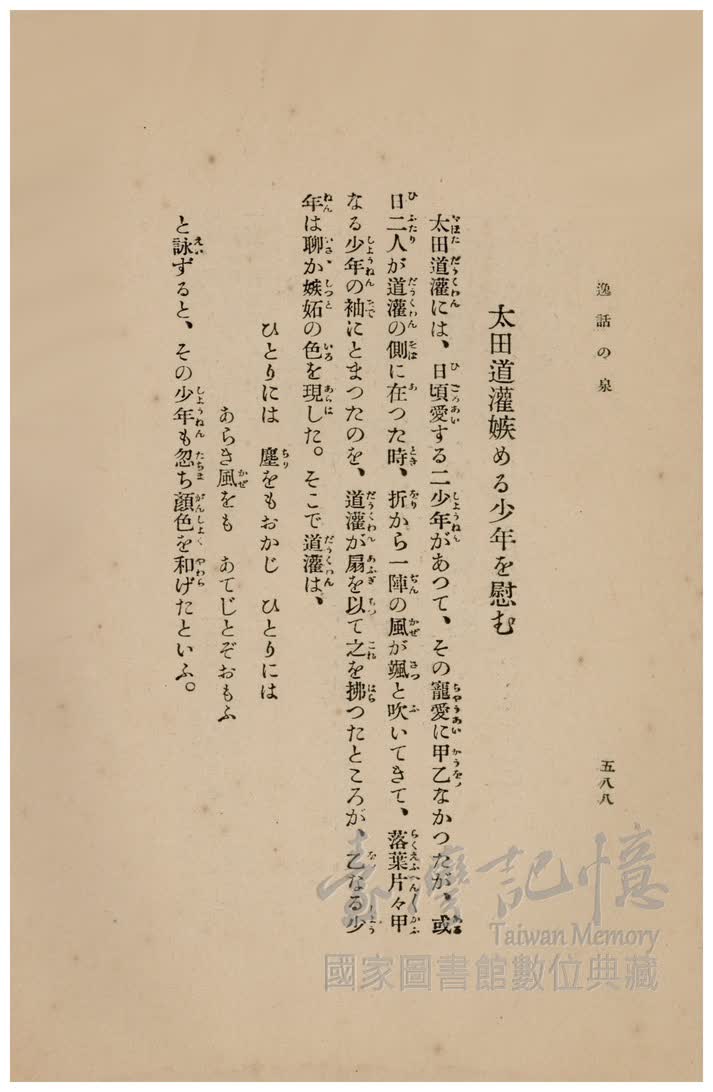 逸話の泉
五八八
太田道灌嫉める少年を慰む
太田道灌には、日頃愛する二少年があつて、その寵愛に甲乙なかつたが、或
日二人が道灌の側に在つた時、折から一陣の風が颯と吹いてきて、落葉片々甲
なる少年の袖にとまつたのを、道灌が扇を以て之を拂つたところが、乙なる少
年は聊か嫉妬の色を現した。そこで道灌は、
ひとりには 塵をもおかじ ひとりには
あらき風をも あてじとぞおもふ
と詠ずると、その少年も忽ち顔色を和げたといふ。
臺灣記憶
Taiwan Memory
國家圖書館數位典藏